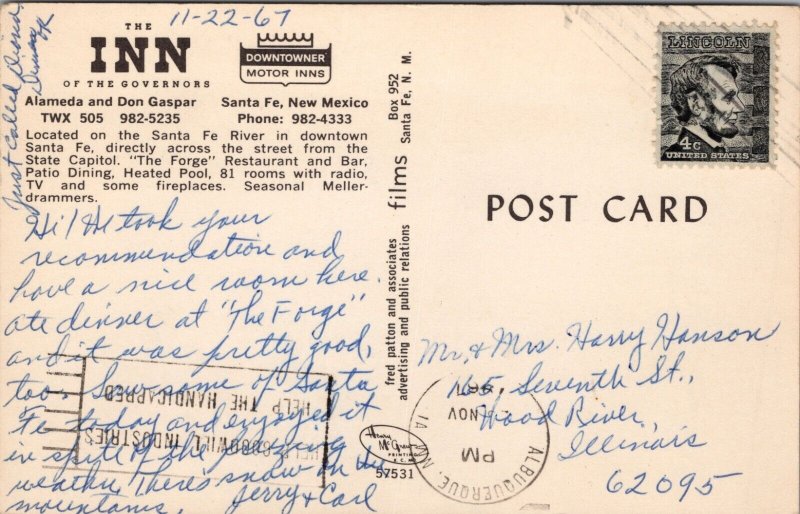 11-22-67
Just Called Dina,
THE
INN
OF THE GOVERNORS
DOWNTOWNER
MOTOR INNS
Alameda and Don Gaspar Santa Fe, New Mexico
TWX 505 982-5235 Phone: 982-4333
Located on the Santa Fe River in downtown
Santa Fe, directly across the street from the
State Capitol. "The Forge" Restaurant and Bar,
Patio Dining, Heated Pool, 81 rooms with radio,
TV and some fireplaces. Seasonal Meller-
drammers.
Hi! We took your
recommendation and
have a nice room here.
Ate dinner at "The Forge"
and it was pretty good,
too. Saw some of Santa
Fe today and enjoyed it
in spite of the freezing
weather. There's snow on the
mountains. Jerry & Carl
HELP GOODWILL INDUSTRIES
HELP THE HANDICAPPED
fred patton and associates
advertising and public relations
films
Box 952
Santa Fe, N. M.
Henry McGrew
PRINTING
K.C. MO.
57531
LINCOLN
4c
UNITED STATES
POST CARD
Mr. & Mrs. Harry Hanson
165 Seventh St.,
Wood River,
Illinois
62095
ALBUQUERQUE, N.M.
PM
NOV
1967